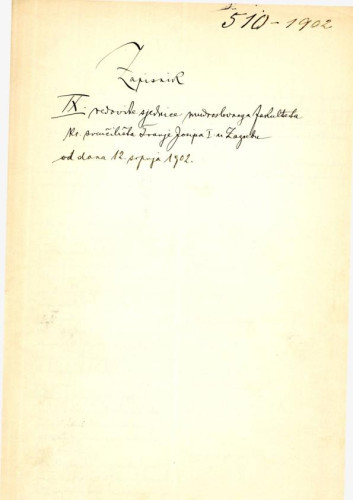 510-1902
Zapisnik
IX. redovite sjednice mudroslovnoga fakulteta
kr. sveučilišta Franje Josipa I. u Zagrebu
od dana 12. srpnja 1902.